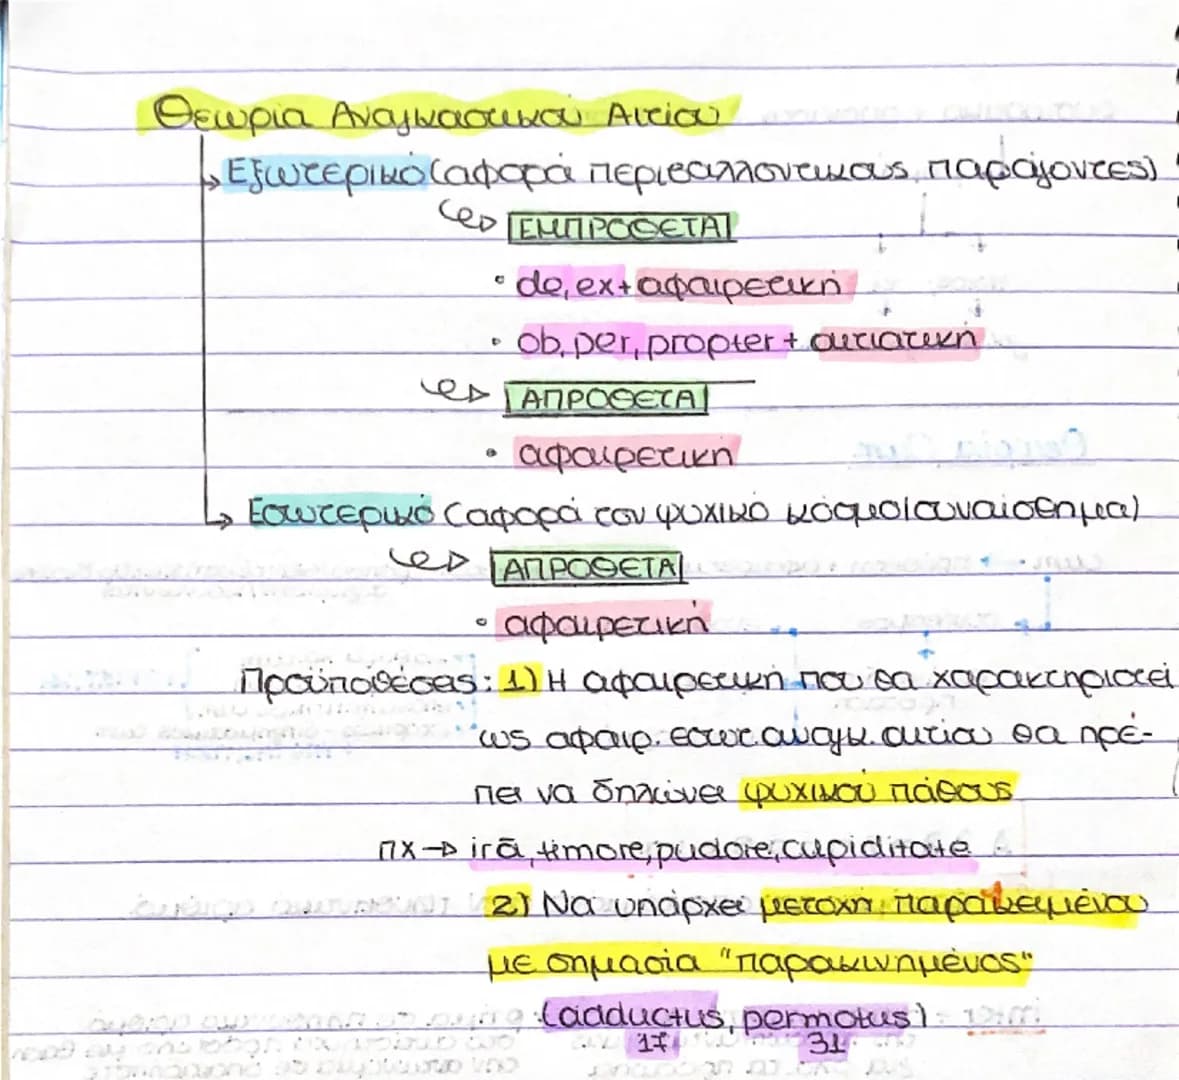 Θεωρία Αναγκαστικού Αιτίου
Εξωτερικό (αφορά περιβαλλοντικούς παράγοντες)
ΕΜΠΡΟΘΕΤΑ
• de, ex + αφαιρετική
• ob, per, propter + αιτιατική
ΑΠΡΟΘΕΤΑ
• αφαιρετική
Εσωτερικό (αφορά τον ψυχικό κόσμο/συναίσθημα)
ΑΠΡΟΘΕΤΑ
• αφαιρετική
Προϋποθέσεις: 1) Η αφαιρετική που θα χαρακτηριστεί
ως αφαιρ. εσωτ. αναγκ. αιτίου θα πρέ-
πει να δηλώνει ψυχικού πάθους
πχ → irā, timore, pudore, cupiditate
2) Να υπάρχει μετοχή παρακειμένου
με σημασία "παρακινημένος"
(adductus, permotus)
17 31